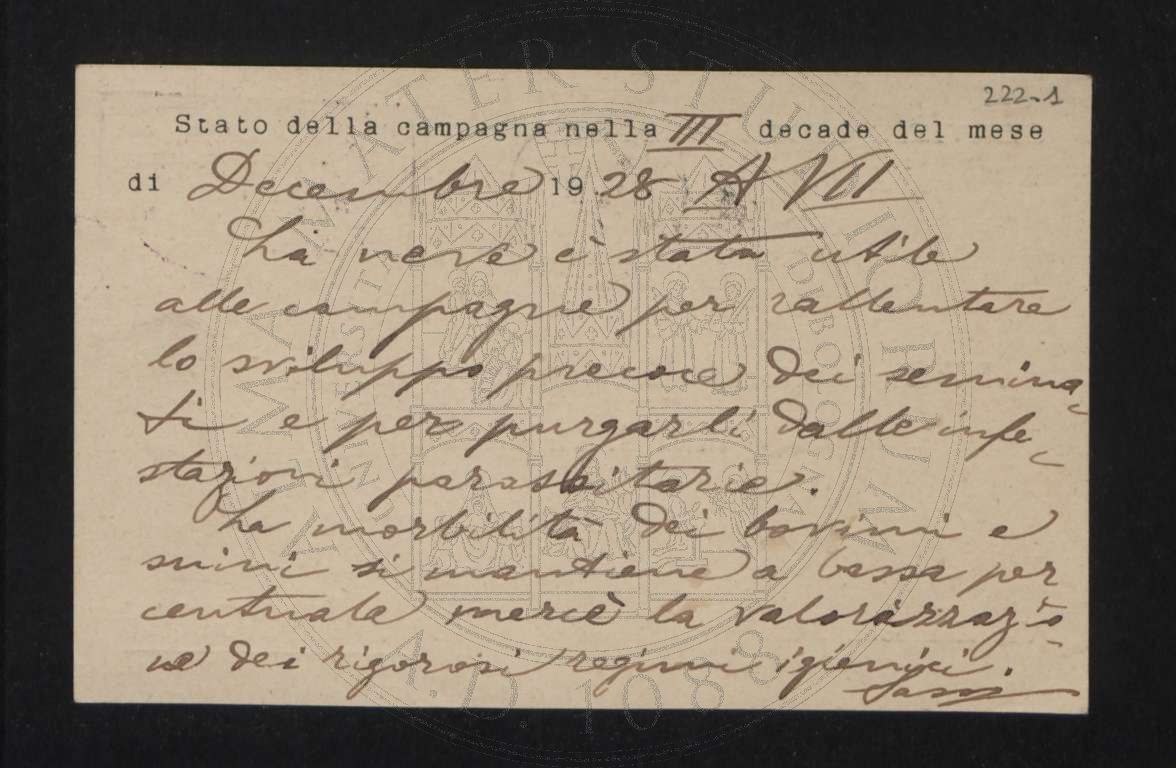 222-1
Stato della campagna nella III decade del mese
di Decembre 1928 A. VII
La neve è stata utile
alle campagne per rallentare
lo sviluppo precoce dei semina-
ti e per purgarli dalle infe-
stazioni parassitarie.
La morbilità dei bovini e
suini si mantiene a bassa per
centuale mercè la valorizzazio-
ne dei rigorosi regimi igienici.
ALMA MATER STUDIORUM
A.D. 1088